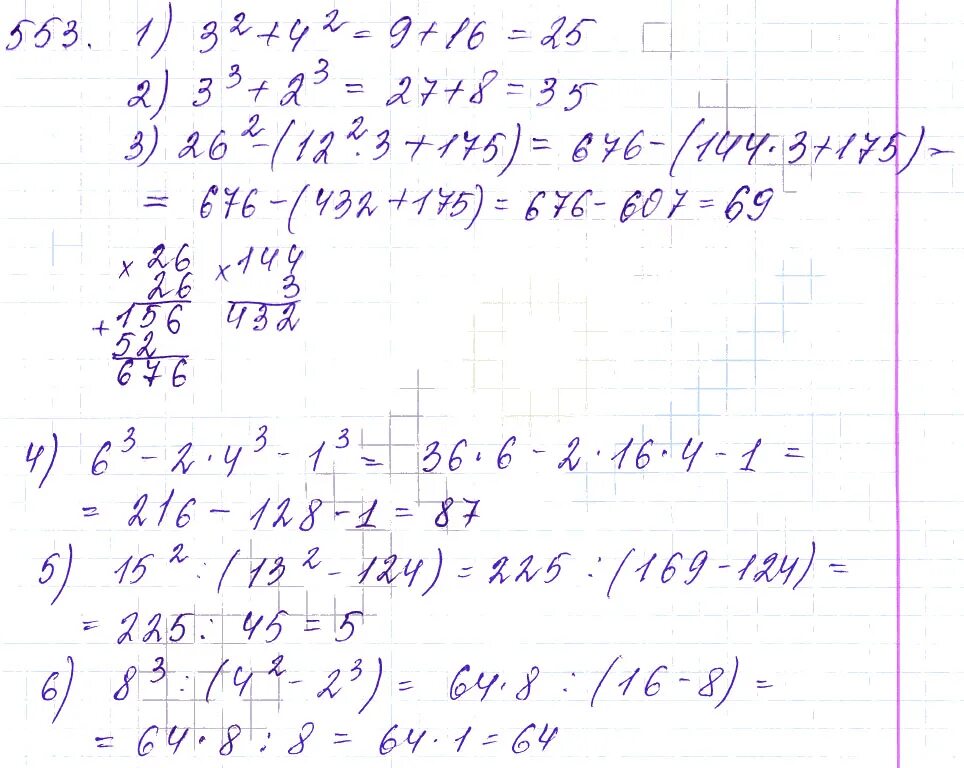 553. 1) 3² + 4² = 9 + 16 = 25
2) 3³ + 2³ = 27 + 8 = 35
3) 26² - (12² · 3 + 175) = 676 - (144 · 3 + 175) -
= 676 - (432 + 175) = 676 - 607 = 69
× 26 × 144
26 3
+ 156 432
52
676
4) 6³ - 2 · 4³ - 1³ = 36 · 6 - 2 · 16 · 4 - 1 =
= 216 - 128 - 1 = 87
5) 15² : (13² - 124) = 225 : (169 - 124) =
= 225 : 45 = 5
6) 8³ : (4² - 2³) = 64 · 8 : (16 - 8) =
= 64 · 8 : 8 = 64 · 1 = 64